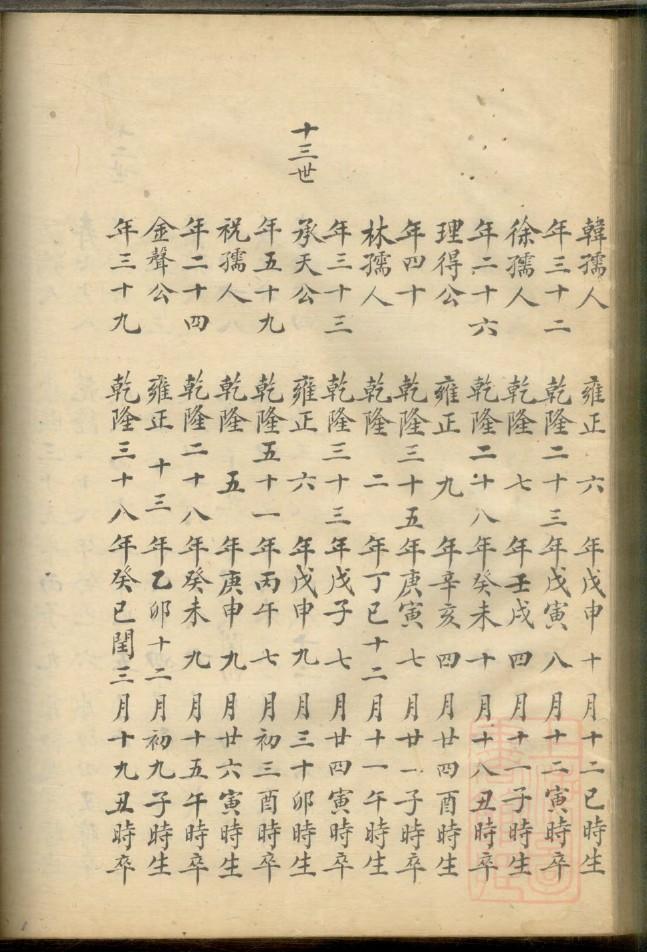 韓孺人 雍正六年戊申十月十二巳時生
年三十二 乾隆二十三年戊寅八月十二寅時卒
徐孺人 乾隆七年壬戌四月十一子時生
年二十六 乾隆二十八年癸未十月十八丑時卒
理得公 雍正九年辛亥四月廿四酉時生
年四十 乾隆三十五年庚寅七月廿一子時卒
林孺人 乾隆二年丁巳十二月十一午時生
年三十三 乾隆三十三年戊子七月廿四寅時卒
十三世
承天公 雍正六年戊申九月三十卯時生
年五十九 乾隆五十一年丙午七月初三酉時卒
祝孺人 乾隆五年庚申九月廿六寅時生
年二十四 乾隆二十八年癸未九月十五午時卒
金聲公 雍正十三年乙卯十二月初九子時生
年三十九 乾隆三十八年癸巳閏三月十九丑時卒